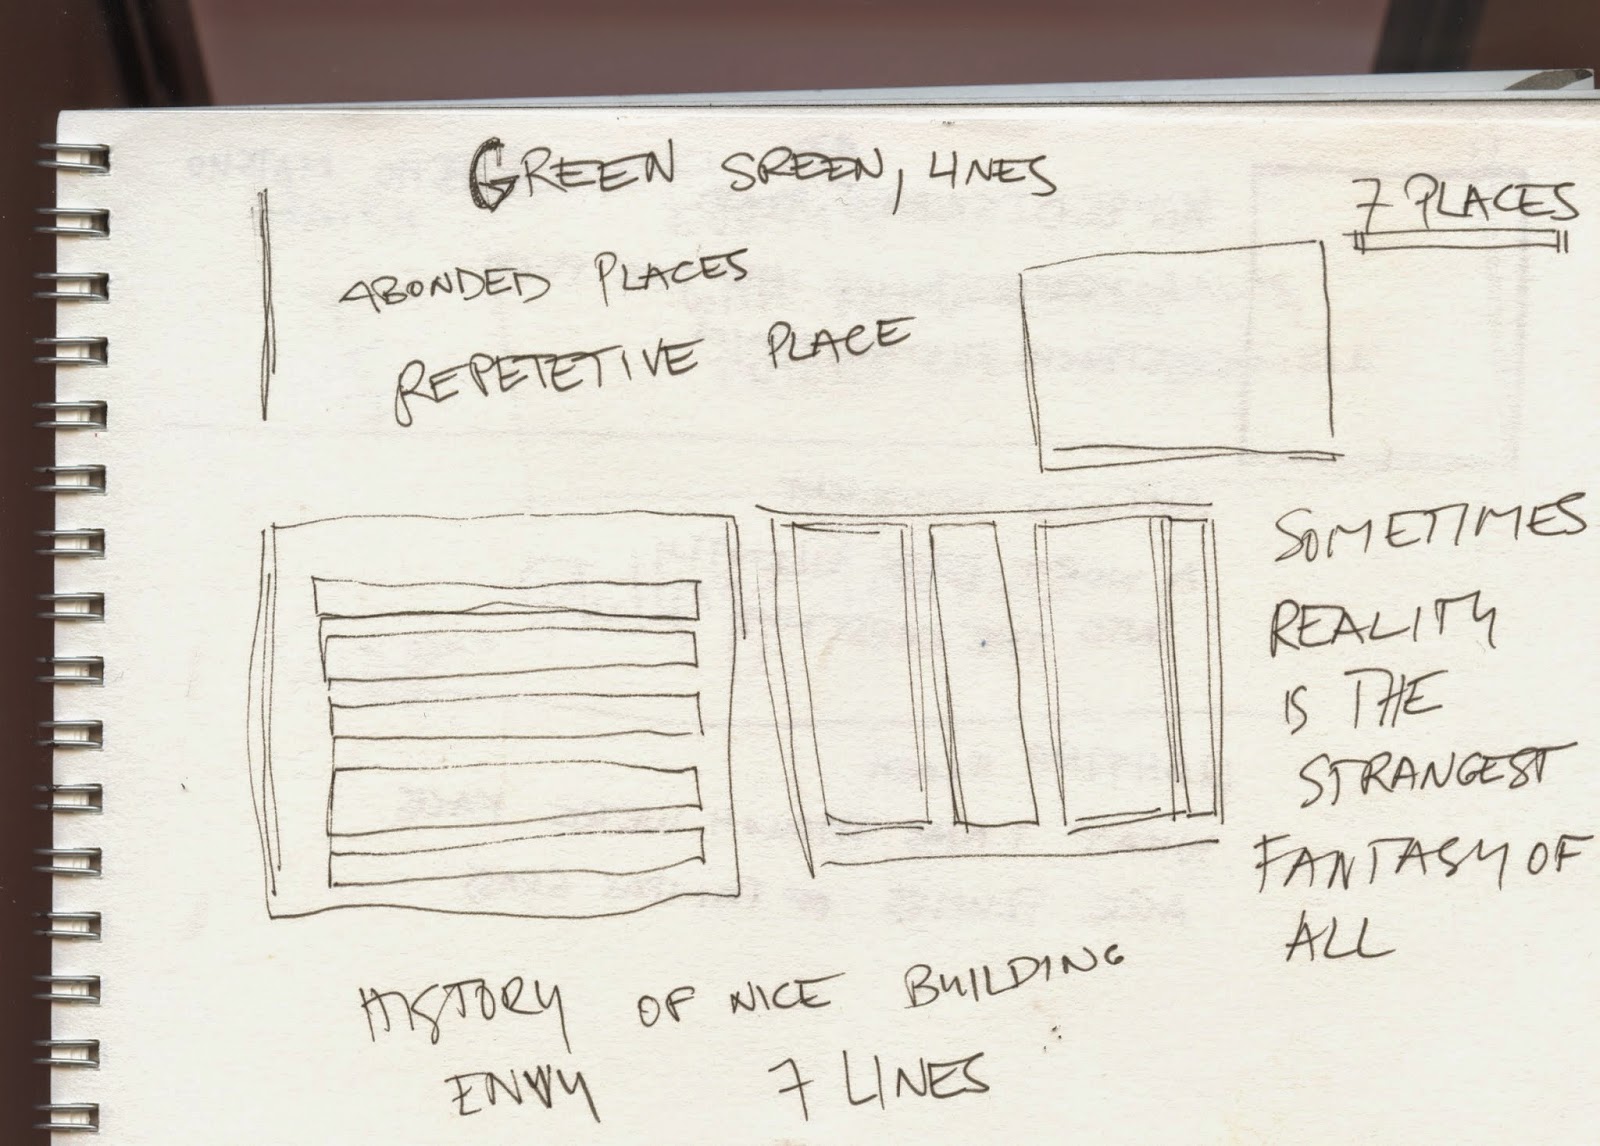 GREEN SREEN, LINES
7 PLACES
ABONDED PLACES
REPETETIVE PLACE
SOMETIMES
REALITY
IS THE
STRANGEST
FANTASY OF
ALL
HISTORY OF NICE BUILDING
ENVY 7 LINES